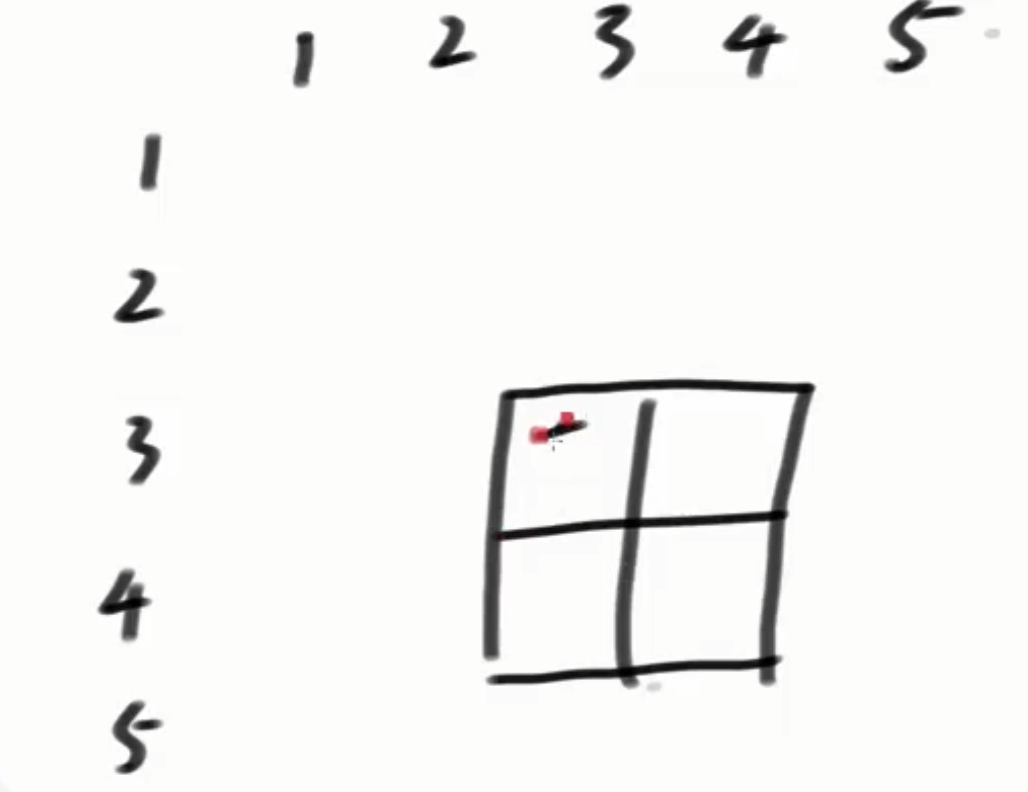 1 2 3 4 5
1
2
3
4
5